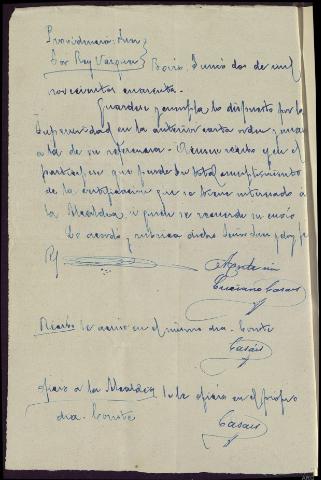 Providencia: Juez
Sor Rey Vazquez } Boiro, Junio dos de mil
novecientos cuarenta.
Guardese y cumpla lo dispuesto por la
Superioridad en la anterior carta orden y una
a la de su referencia. Acusese recibo y en el
participese que pende su total cumplimiento
de la certificación que se tiene interesado a
la Alcaldía, a quien se recuerde su envío
Lo acordó y rubrica dicho Señor Juez y doy fe
R/
Ante mi
Luciano Casais
Recibo Se acusó en el mismo dia. Conste
Casais
Oficio a la Alcaldia Se le ofició en el propio
dia. Conste
Casais